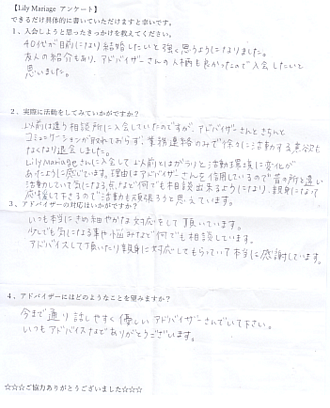 【Lily Mariage アンケート】
できるだけ具体的に書いていただけますと幸いです。
1、入会しようと思ったきっかけを教えてください。
40代が目前になり結婚したいと強く思うようになりました。
友人の紹介もあり、アドバイザーさんの人柄も良かったので入会したいと
思いました。
2、実際に活動をしてみていかがですか？
以前は違う相談所に入会していたのですが、アドバイザーさんときちんと
コミュニケーションが取れておらず、業務連絡のみで徐々に活動する
なくなり退会しました。
Lily Mariageさんに入会して以前とはがらりと活動環境に変化が
あったように感じています。理由はアドバイザーさんを信用しているので
活動していて気になる点など何でも相談出来るようになり、親身になって
応援して下さるので活動も頑張ろうと思えています。
3、アドバイザーの対応はいかがですか？
いつも本当にきめ細やかな対応をして頂いています。
少しでも気になる事や悩みなど何でも相談しています。
アドバイスして頂いたり親身に対応してもらっていて本当に感謝しています。
4、アドバイザーにはどのようなことを望みますか？
今まで通り話しやすく優しいアドバイザーさんでいて下さい。
いつもアドバイスなどありがとうございます。
☆☆☆ご協力ありがとうございました☆☆☆